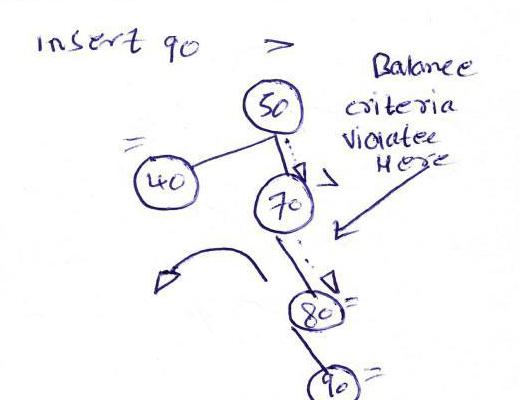 Insert 90 >
Balance
50
criteria
violates
Here
=
40
>
70
80 =
90 =